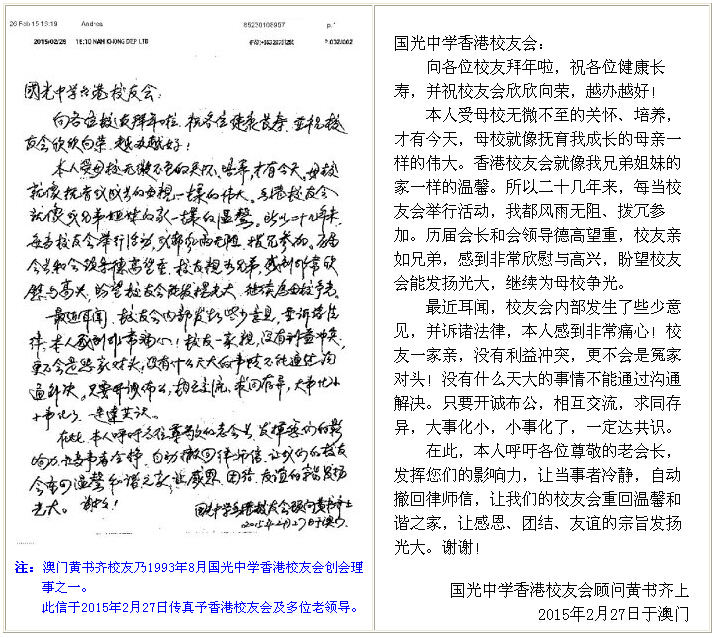 26 Feb 15 15:19 Andrea 65230108957 p.1
2015/02/26 P.002/002
國光中学香港校友会：
向各位校友拜年啦，祝各位健康长寿，並祝校
友会欣欣向荣，越办越好！
本人受母校无微不至的关怀、培养，才有今天，母校
就像抚育我成长的母亲一样的伟大。香港校友会
就像我兄弟姐妹的家一样的温馨。所以二十几年来，
每当校友会举行活动，我都风雨无阻，拨冗参加。历届
会长和会领导德高望重，校友亲如兄弟，感到非常欣
慰与高兴，盼望校友会能发扬光大，继续为母校争光。
最近耳闻，校友会内部发生了些少意见，并诉诸法
律，本人感到非常痛心！校友一家亲，没有利益冲突，
更不会是冤家对头，没有什么天大的事情不能通过沟
通解决。只要开诚布公，相互交流，求同存异，大事化小
小事化了，一定达共识。
在此，本人呼吁各位尊敬的老会长，发挥您们的影
响力，让当事者冷静，自动撤回律师信，让我们的校友
会重回温馨和谐之家，让感恩、团结、友谊的宗旨发扬
光大。谢谢！
国光中学香港校友会顾问黄书齐上
2015年2月27日于澳门
注：澳门黄书齐校友乃1993年8月国光中学香港校友会创会理
事之一。
此信于2015年2月27日传真予香港校友会及多位老领导。
国光中学香港校友会：
向各位校友拜年啦，祝各位健康长
寿，并祝校友会欣欣向荣，越办越好！
本人受母校无微不至的关怀、培养，
才有今天，母校就像抚育我成长的母亲一
样的伟大。香港校友会就像我兄弟姐妹的
家一样的温馨。所以二十几年来，每当校
友会举行活动，我都风雨无阻、拨冗参
加。历届会长和会领导德高望重，校友亲
如兄弟，感到非常欣慰与高兴，盼望校友
会能发扬光大，继续为母校争光。
最近耳闻，校友会内部发生了些少意
见，并诉诸法律，本人感到非常痛心！校
友一家亲，没有利益冲突，更不会是冤家
对头！没有什么天大的事情不能通过沟通
解决。只要开诚布公，相互交流，求同存
异，大事化小，小事化了，一定达共识。
在此，本人呼吁各位尊敬的老会长，
发挥您们的影响力，让当事者冷静，自动
撤回律师信，让我们的校友会重回温馨和
谐之家，让感恩、团结、友谊的宗旨发扬
光大。谢谢！
国光中学香港校友会顾问黄书齐上
2015年2月27日于澳门